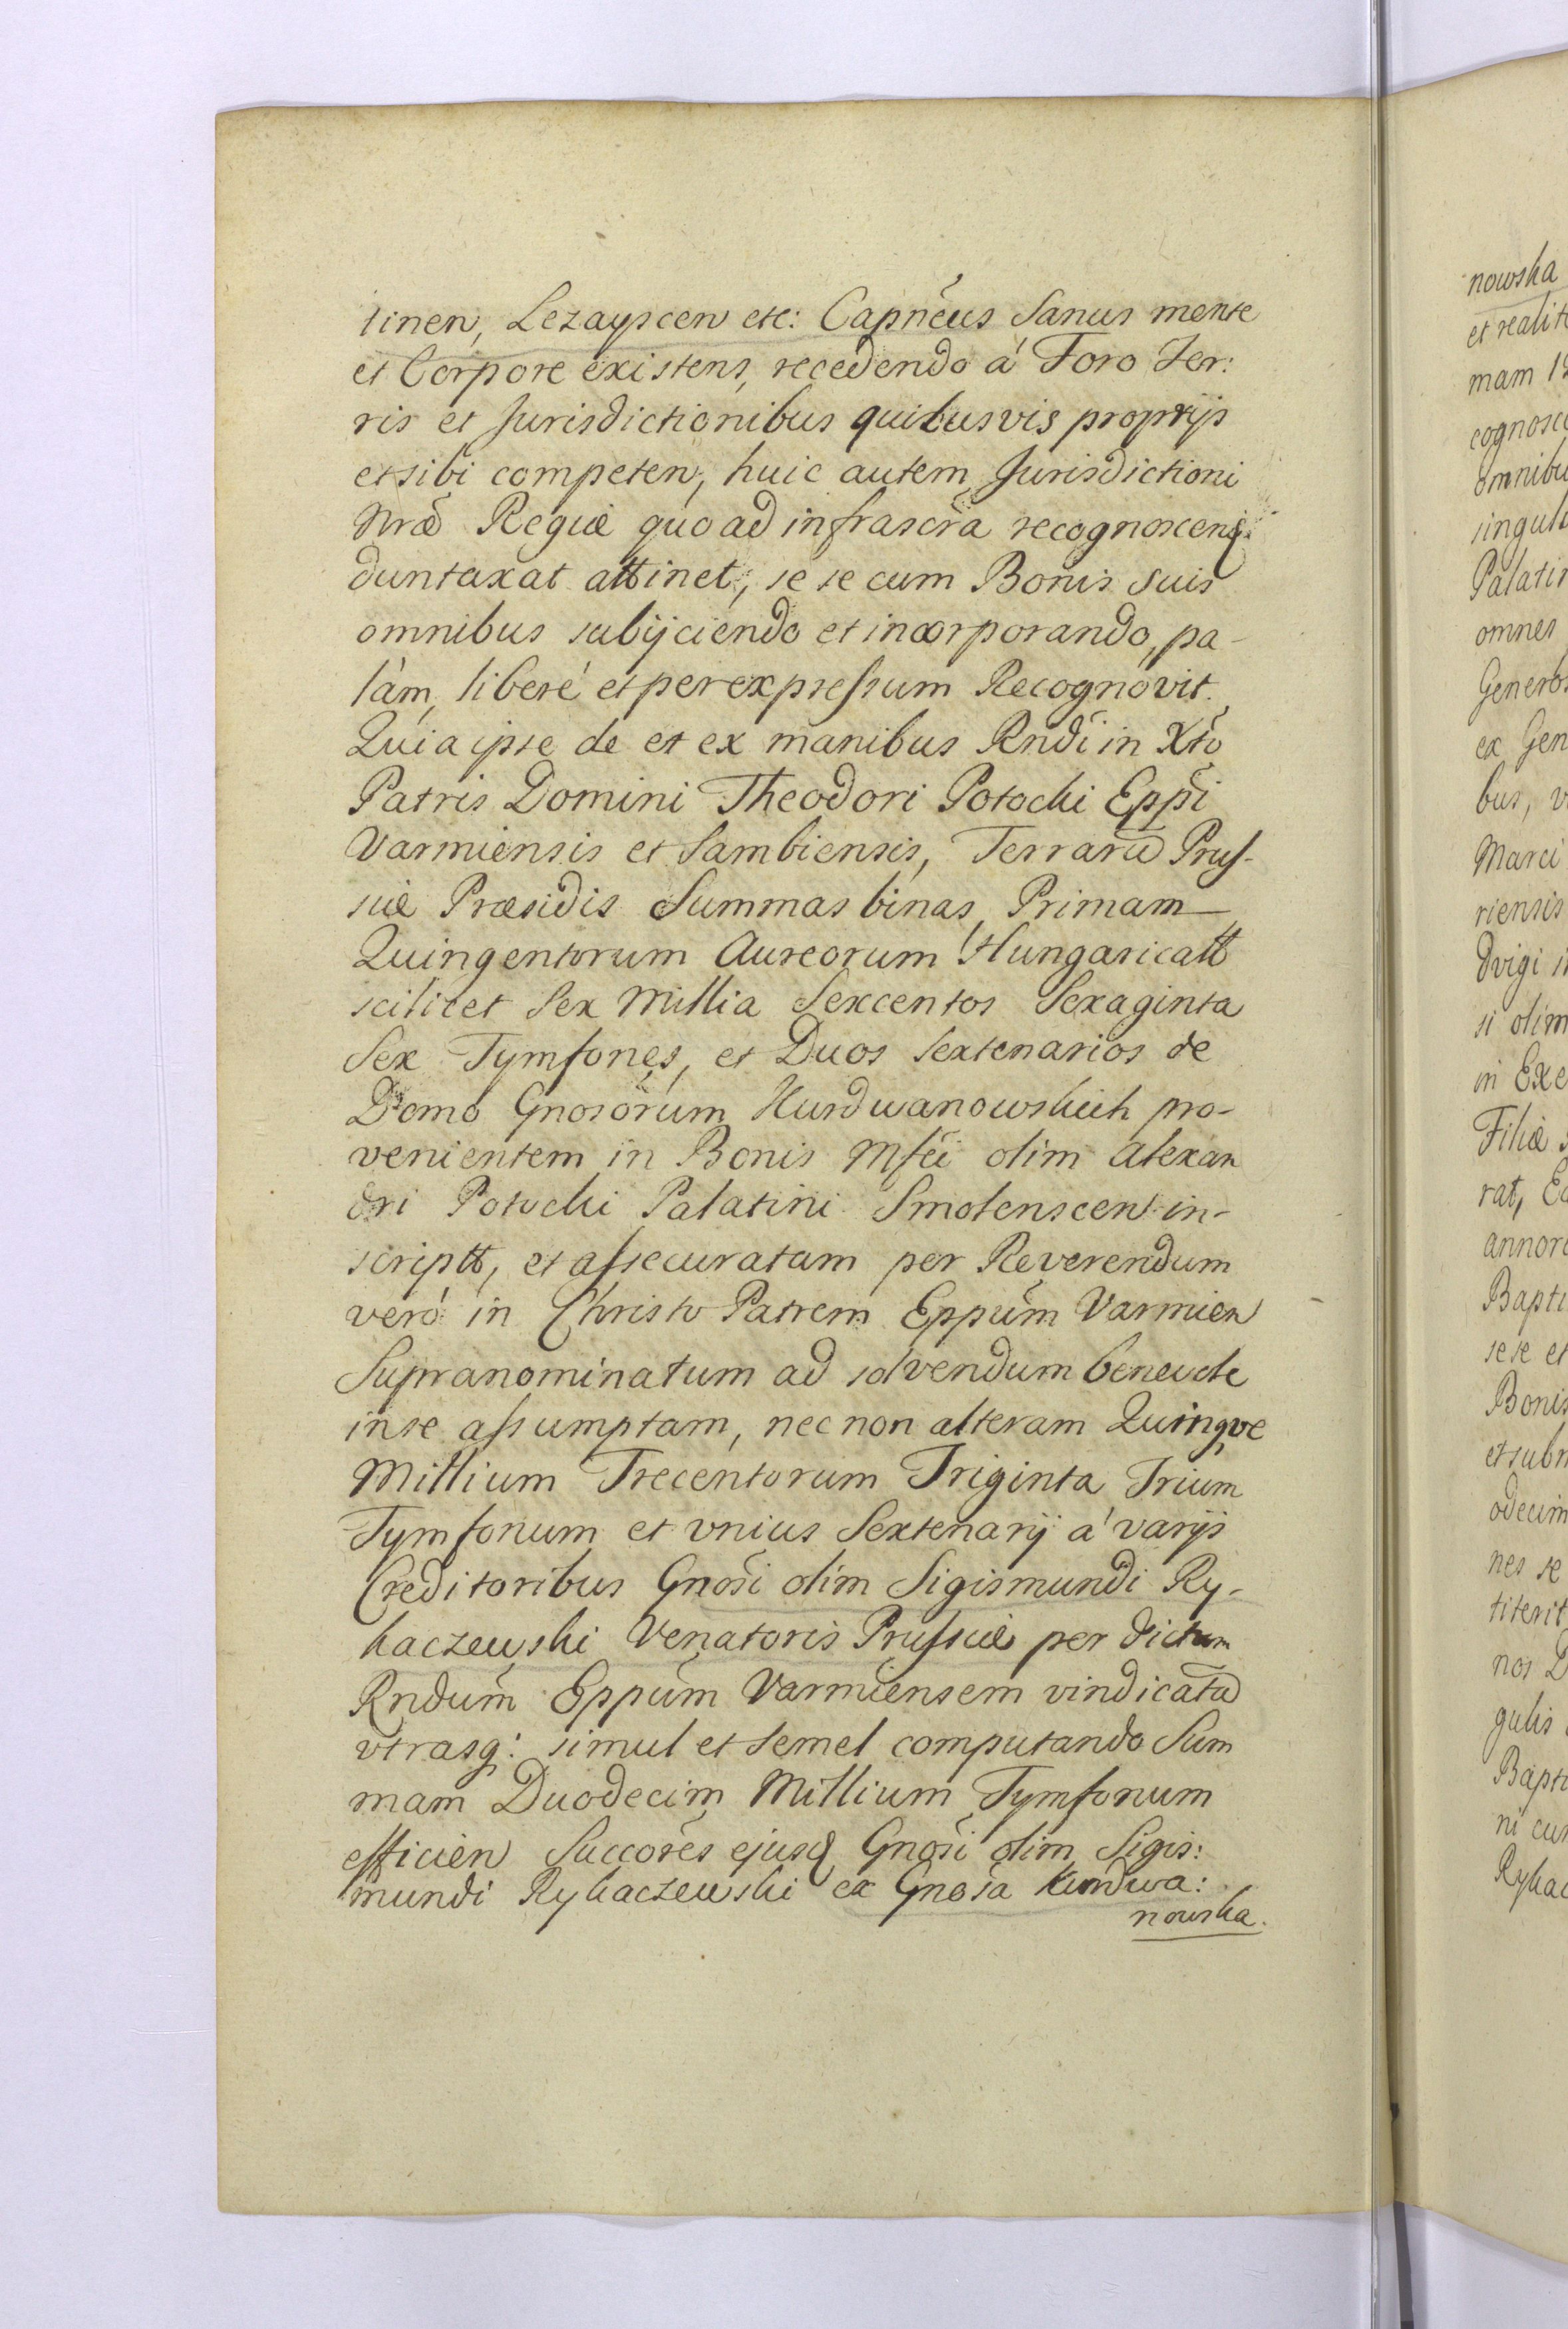 tinen, Lezayscen etc: Capnēus Sanus mente
et Corpore existens, recedendo á Foro Ter:
ris et Jurisdictionibus quibusvis proprijs
et sibi competen, huic autem Jurisdictioni
Nrāe Regiæ quo ad infrascrā recognoscen
duntaxat attinet, se se cum Bonis suis
omnibus subijciendo et incorporando, pa-
làm, liberé et per expressum Recognovit.
Quia ipse de et ex manibus Rndi in Xto
Patris Domini Theodori Potocki Eppī
Varmiensis et Sambiensis, Terrarū Prus-
siæ Præsidis Summas binas, Primam
Quingentorum Aureorum Hungaricatt
scilicet Sex Millia Sexcentos Sexaginta
Sex Tymfones, et Duos Sextenarios de
Domo Gnosorum Hurdwanowskich pro-
venientem in Bonis Mfci olim Alexan
dri Potocki Palatini Smolenscen in-
scriptt, et assecuratam per Reverendum
veró in Christo Patrem Eppūm Varmien
Supranominatum ad solvendum benevole
in se assumptam, nec non alteram Quinqve
Millium Trecentorum Triginta Trium
Tymfonum et vnius Sextenarij á varijs
Creditoribus Gnosi olim Sigismundi Ry-
kaczewski Venatoris Prussiæ per dictum
Rndum Eppūm Varmiensem vindicatā
vtrasq: simul et semel computando Sum
mam Duodecim Millium Tymfonum
efficien Succores ejusd Gnosi olim Sigis:
mundi Rykaczewski ex Gnosa Kurdwa:
nowska.
nowska
et realit
mam
cognosc
omnibu
singul
Palati
omnes
Generos
ex Gen
bus, v
Marci
riensis
dvigi
si olim
in Exe
Filiæ
rat,
annor
Bapti
sese et
Bonis
et subm
odecim
nes se
titerit
nos
gulis
Bapt
ni cu
Rykac